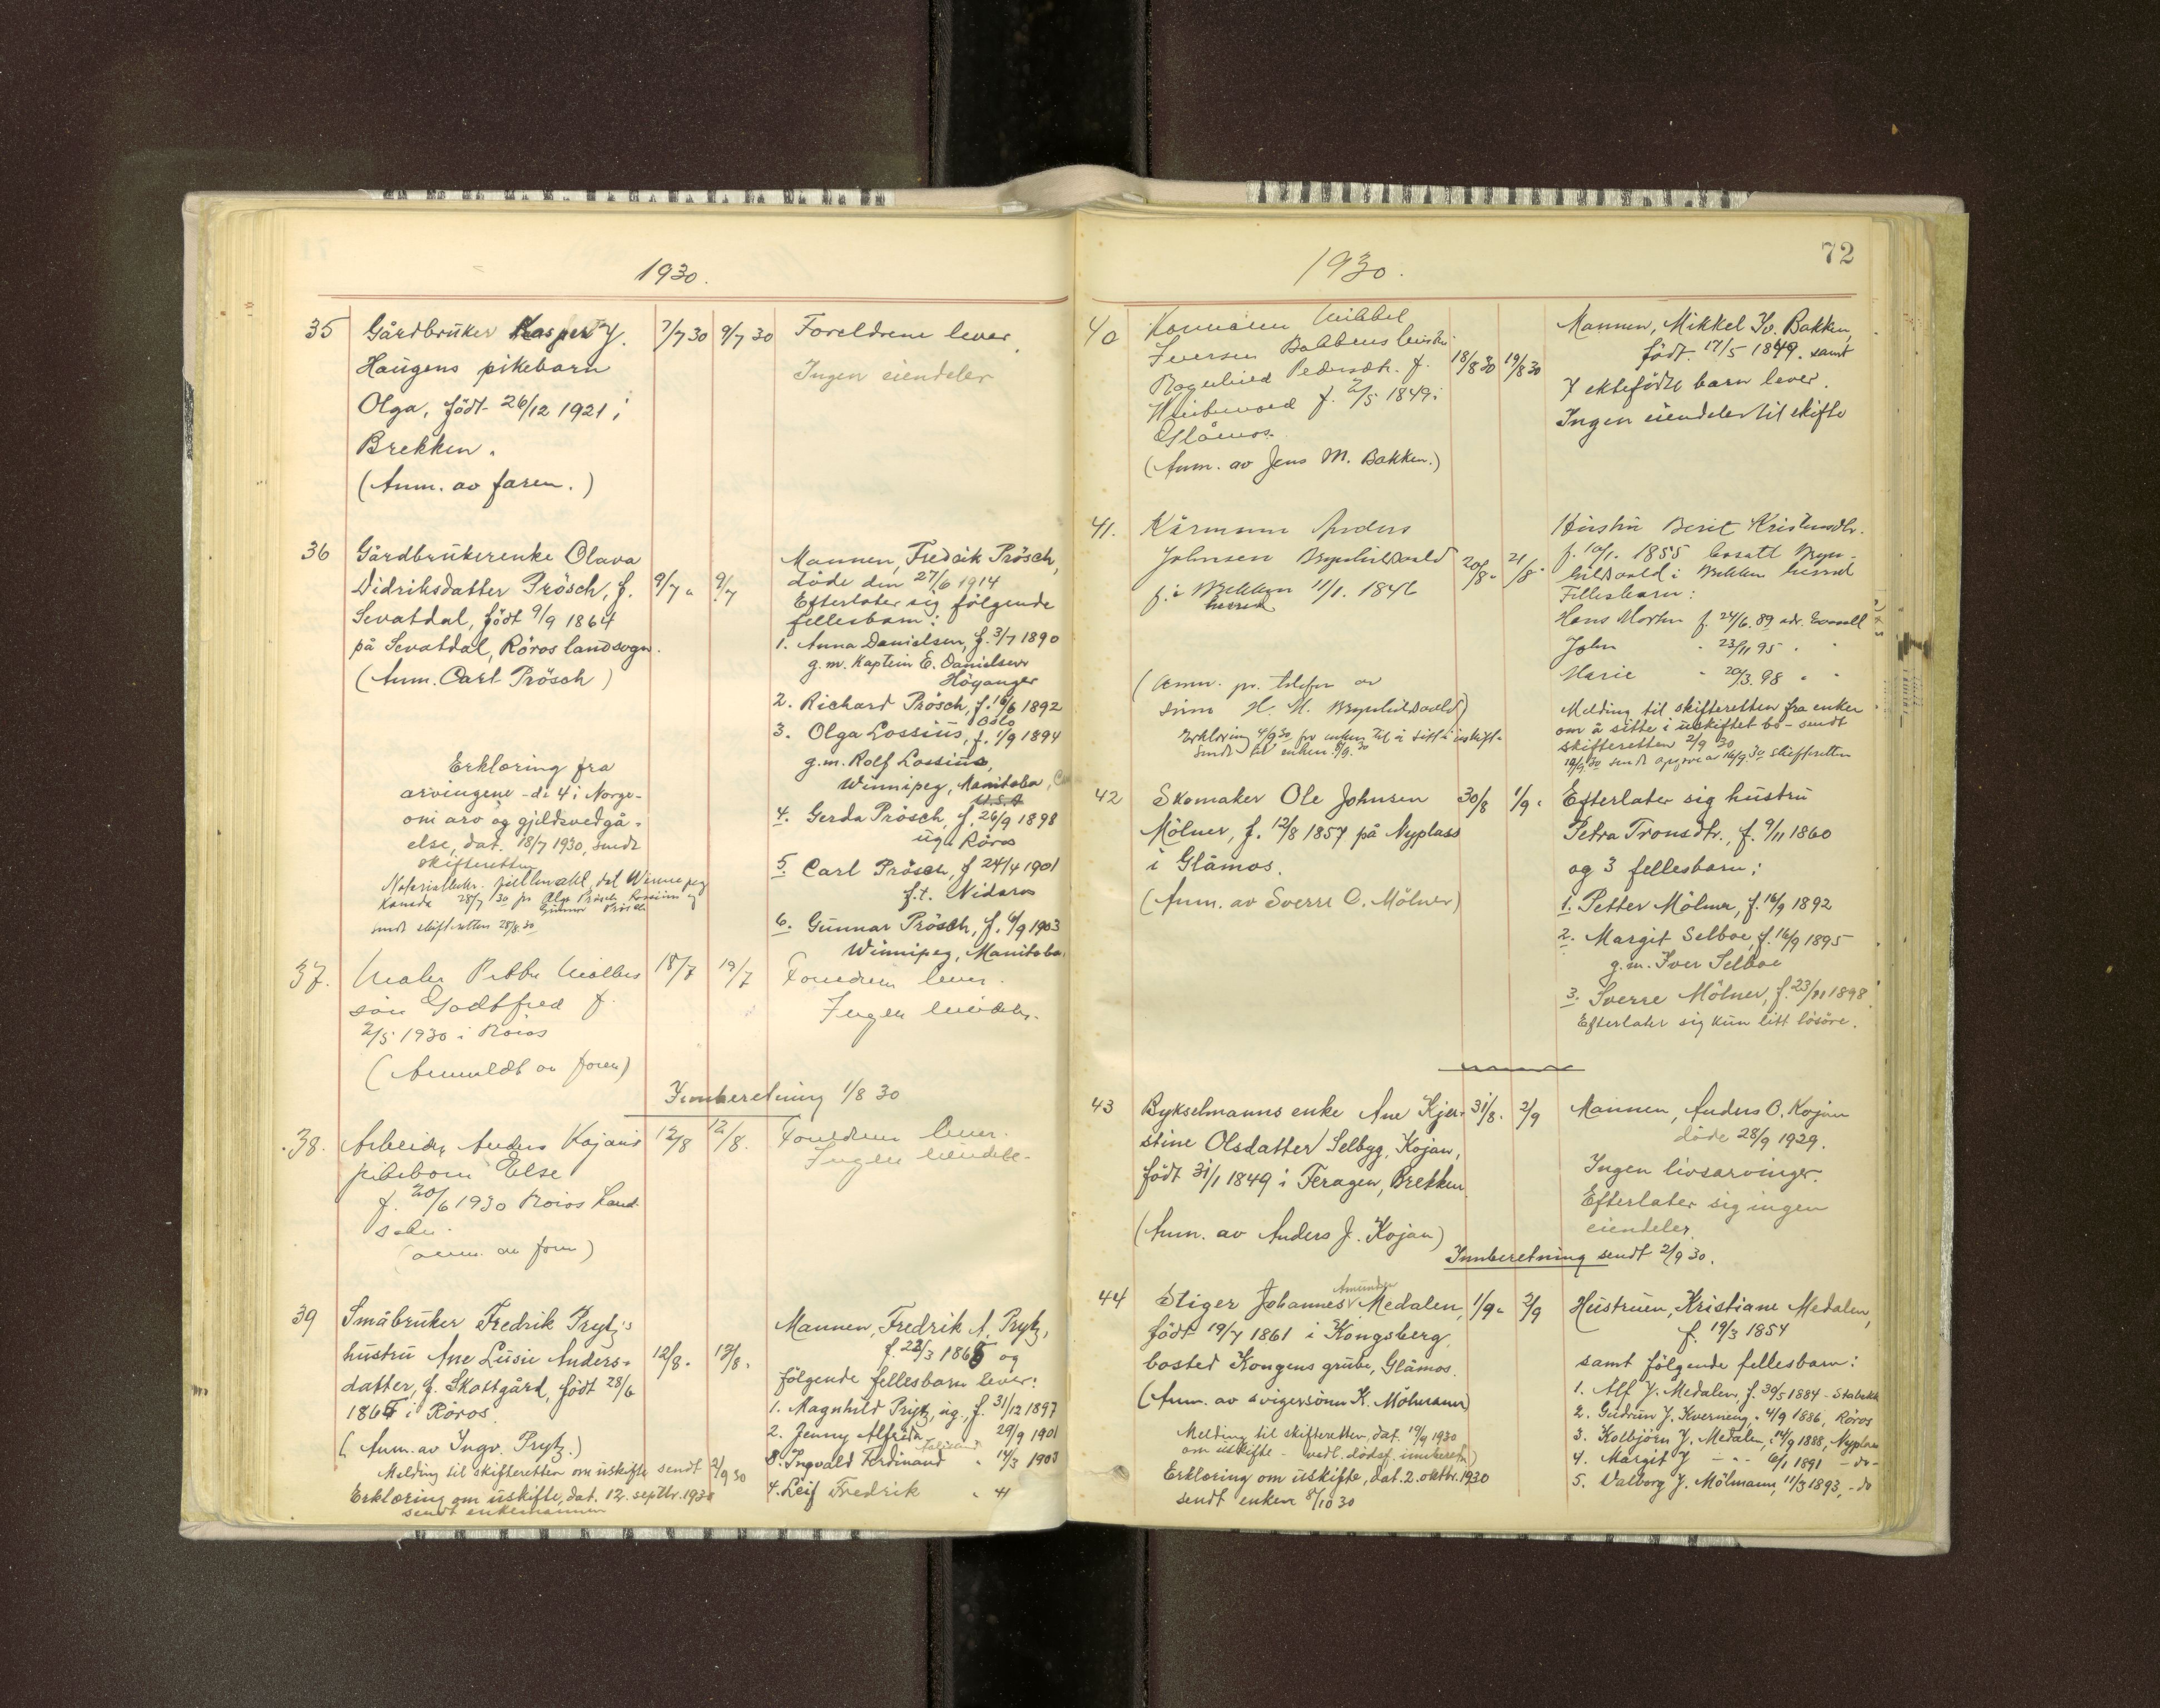 1930.
35 Gårdbruker Kasper J. 7/7 30 9/7 30 Foreldrene lever.
Haugens pikebarn Ingen eiendeler
Olga, født 26/12 1921 i
Brekken.
(Anm. av faren.)
36 Gårdbrukerenke Olava 9/7 " 9/7 Mannen, Fredrik Prösch,
Didriksdatter Prösch, f. döde den 27/6 1914
Sevatdal, födt 9/9 1864 Efterlater sig fölgende
på Sevatdal, Röros landsogn. fellesbarn:
(Anm. Carl Prösch) 1. Anna Danielsen, f. 3/7 1890
g.m. Kaptein E. Danielsen
Höyanger
2. Richard Prösch, f. 16/6 1892
Oslo
3. Olga Lossius, f. 1/9 1894
g.m. Rolf Lossius,
Winnipeg, Manitoba,
U.S.A
4. Gerda Prösch, f. 26/9 1898
ug. Röros
5. Carl Prösch, f 24/4 1901
f.t. Nidaros
6. Gunnar Prösch, f. 6/9 1903
Winnipeg, Manitoba.
Erklæring fra
arvingene - de 4 i Norge -
om arv og gjeldsvedgå-
else, dat. 18/7 1930, sendt
skifteretten
dat Winnipeg
Kanada 28/7 30 fra Olga Prösch Lossius og
Gunnar Prösch
sendt skifteretten 28/8.30
37. Maler Petter Möllers 18/7 19/7 Foreldrene lever.
sön Godtfred f. Ingen eiendeler.
2/5 1930 i Röros
(Anmeldt av faren)
Innberetning 1/8 30
38. Arbeider Anders Kojans 12/8 12/8. Foreldrene lever.
pikebarn Else Ingen eiendeler.
f. 20/6 1930 Röros Land-
sokn.
(anm. av faren)
39 Småbruker Fredrik Prytz's 12/8. 13/8. Mannen, Fredrik A. Prytz,
hustru Ane Lusie Anders- og
datter, f. Skottgård, födt 28/6 fölgende fellesbarn lever:
i Röros. 1. Magnhild Prytz, ug., f. 31/12 1897
(Anm. av Ingv. Prytz.) 2. Jenny Alfrida 29/9 1901
3. Ingvald Ferdinand " 14/3 1903
4. Leif Fredrik " 4
Melding til skifteretten om uskifte sendt 2/9 30
Erklæring om uskifte, dat. 12. septbr. 1930
sendt enkemannen
72
1930.
40 Mikkel Mannen, Mikkel Iv. Bakken,
Iversen Bakkens hustru 18/8 30 19/8 30 födt 17/5 1849. samt
Ragnhild Pedersdtr. f. 7 ektefödte barn lever.
f. 2/5 1849 i Ingen eiendeler til skifte
Glåmos.
(Anm. av Jens M. Bakken.)
41. Kårmann Anders Hustru Berit Kristensdtr.
Johnsen Brynhildsvold 20/8. 21/8. f. 10/1. 1855 bosatt Bryn-
f. i Brekken 11/1. 1846 hildsvold i Brekken herred
herred Fellesbarn:
Hans Morten f. 24/6. 89
John " 23/11 95 " "
Marie " 20/3. 98 " "
(Anm. pr. telefon av Melding til skifteretten fra enken
sönn H. M. Brynhildsvold) om å sitte i uskiftet bo - sendt
Erklæring 4/9 30 for enken til å sitte i uskifte skifteretten 2/9 30
sendt til enken 8/9. 30
42 Skomaker Ole Johnsen 30/8 1/9. Efterlater sig hustru
Mölner, f. 12/8 1857 på Nyplass Petra Tronsdtr., f. 9/11 1860
i Glåmos. og 3 fellesbarn:
(Anm. av Sverre O. Mölner) 1. Petter Mölner, f. 16/9 1892
2. Margit Selboe, f. 16/9 1895
g.m. Iver Selboe
3. Sverre Mölner, f. 23/11 1898.
Efterlater sig kun litt lösöre.
43 Bykselmanns enke Ane Kjer- 31/8. 2/9 Mannen, Anders O. Kojan
stine Olsdatter Selbyg, Kojan, döde 28/9 1929.
födt 31/1 1849 i Feragen, Brekken. Ingen livsarvinger.
Efterlater sig ingen
(Anm. av Anders J. Kojan) eiendeler.
Innberetning sendt 2/9 30.
44 Stiger Johannes Amundsen Medalen, 1/9. 2/9 Hustruen, Kristiane Medalen,
födt 19/7 1861 i Kongsberg, f. 19/3 1854
bosted Kongens grube, Glåmos. samt fölgende fellesbarn:
(Anm. av svigersönn K. Mölmann) 1. Alf J. Medalen, f. 30/5 1884 - Stabekk
2. Gudrun J. Kverneng, " 4/9 1886, Röros
3. Kolbjörn J. Medalen, " 14/9 1888, Nyplass
4. Margit J - " - 6/1 1891 - do -
5. Valborg J. Mölmann, 11/3 1893, - do
Melding til skifteretten, dat. 19/9 1930
om uskifte - vedl. dödsf. innberetn)
Erklæring om uskifte, dat. 2. oktbr. 1930
sendt enken 8/10 30